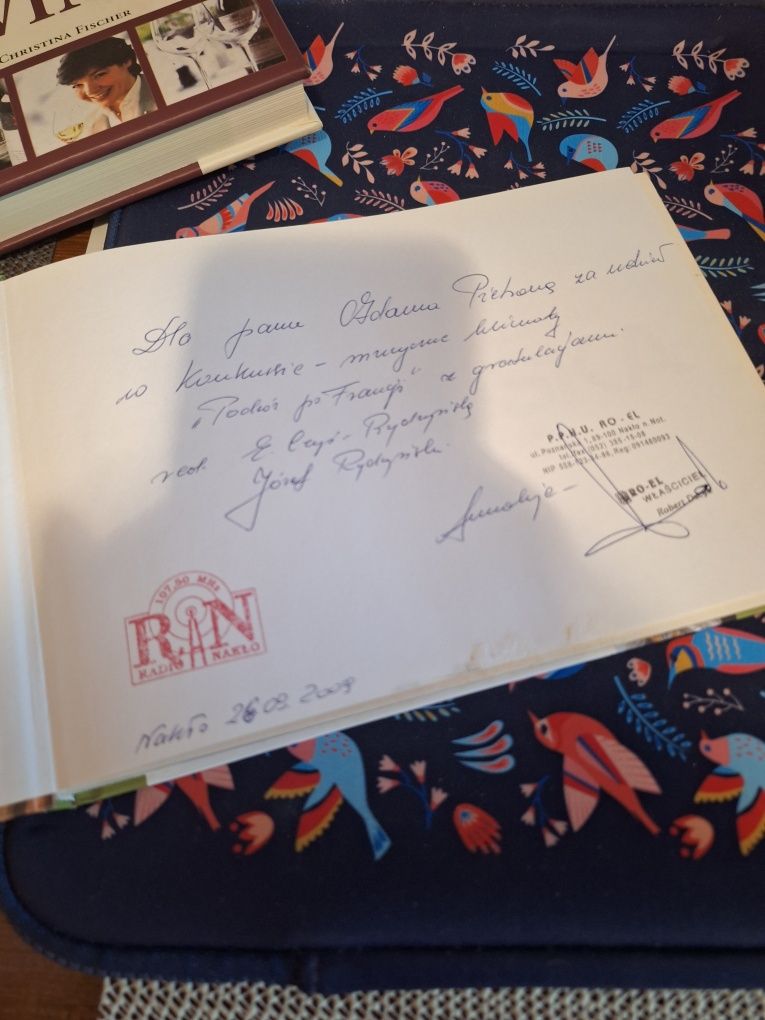 CHRISTINA FISCHER
Dla pana Adama Pietronę za udział
w Konkursie – muzyczne klimaty
"Podróż po Francji" z gratulacjami.
red. E. Rydzyńską
Józef Rydzyński.
P.P.H.U. RO-EL
ul. Poznańska 1, 89-100 Nakło n. Not.
tel. fax (052) 385-18-08
RO-EL
WŁAŚCICIEL
Robert
107,50 MHz
RN
RADIO NAKŁO
Nakło 26.09.2009